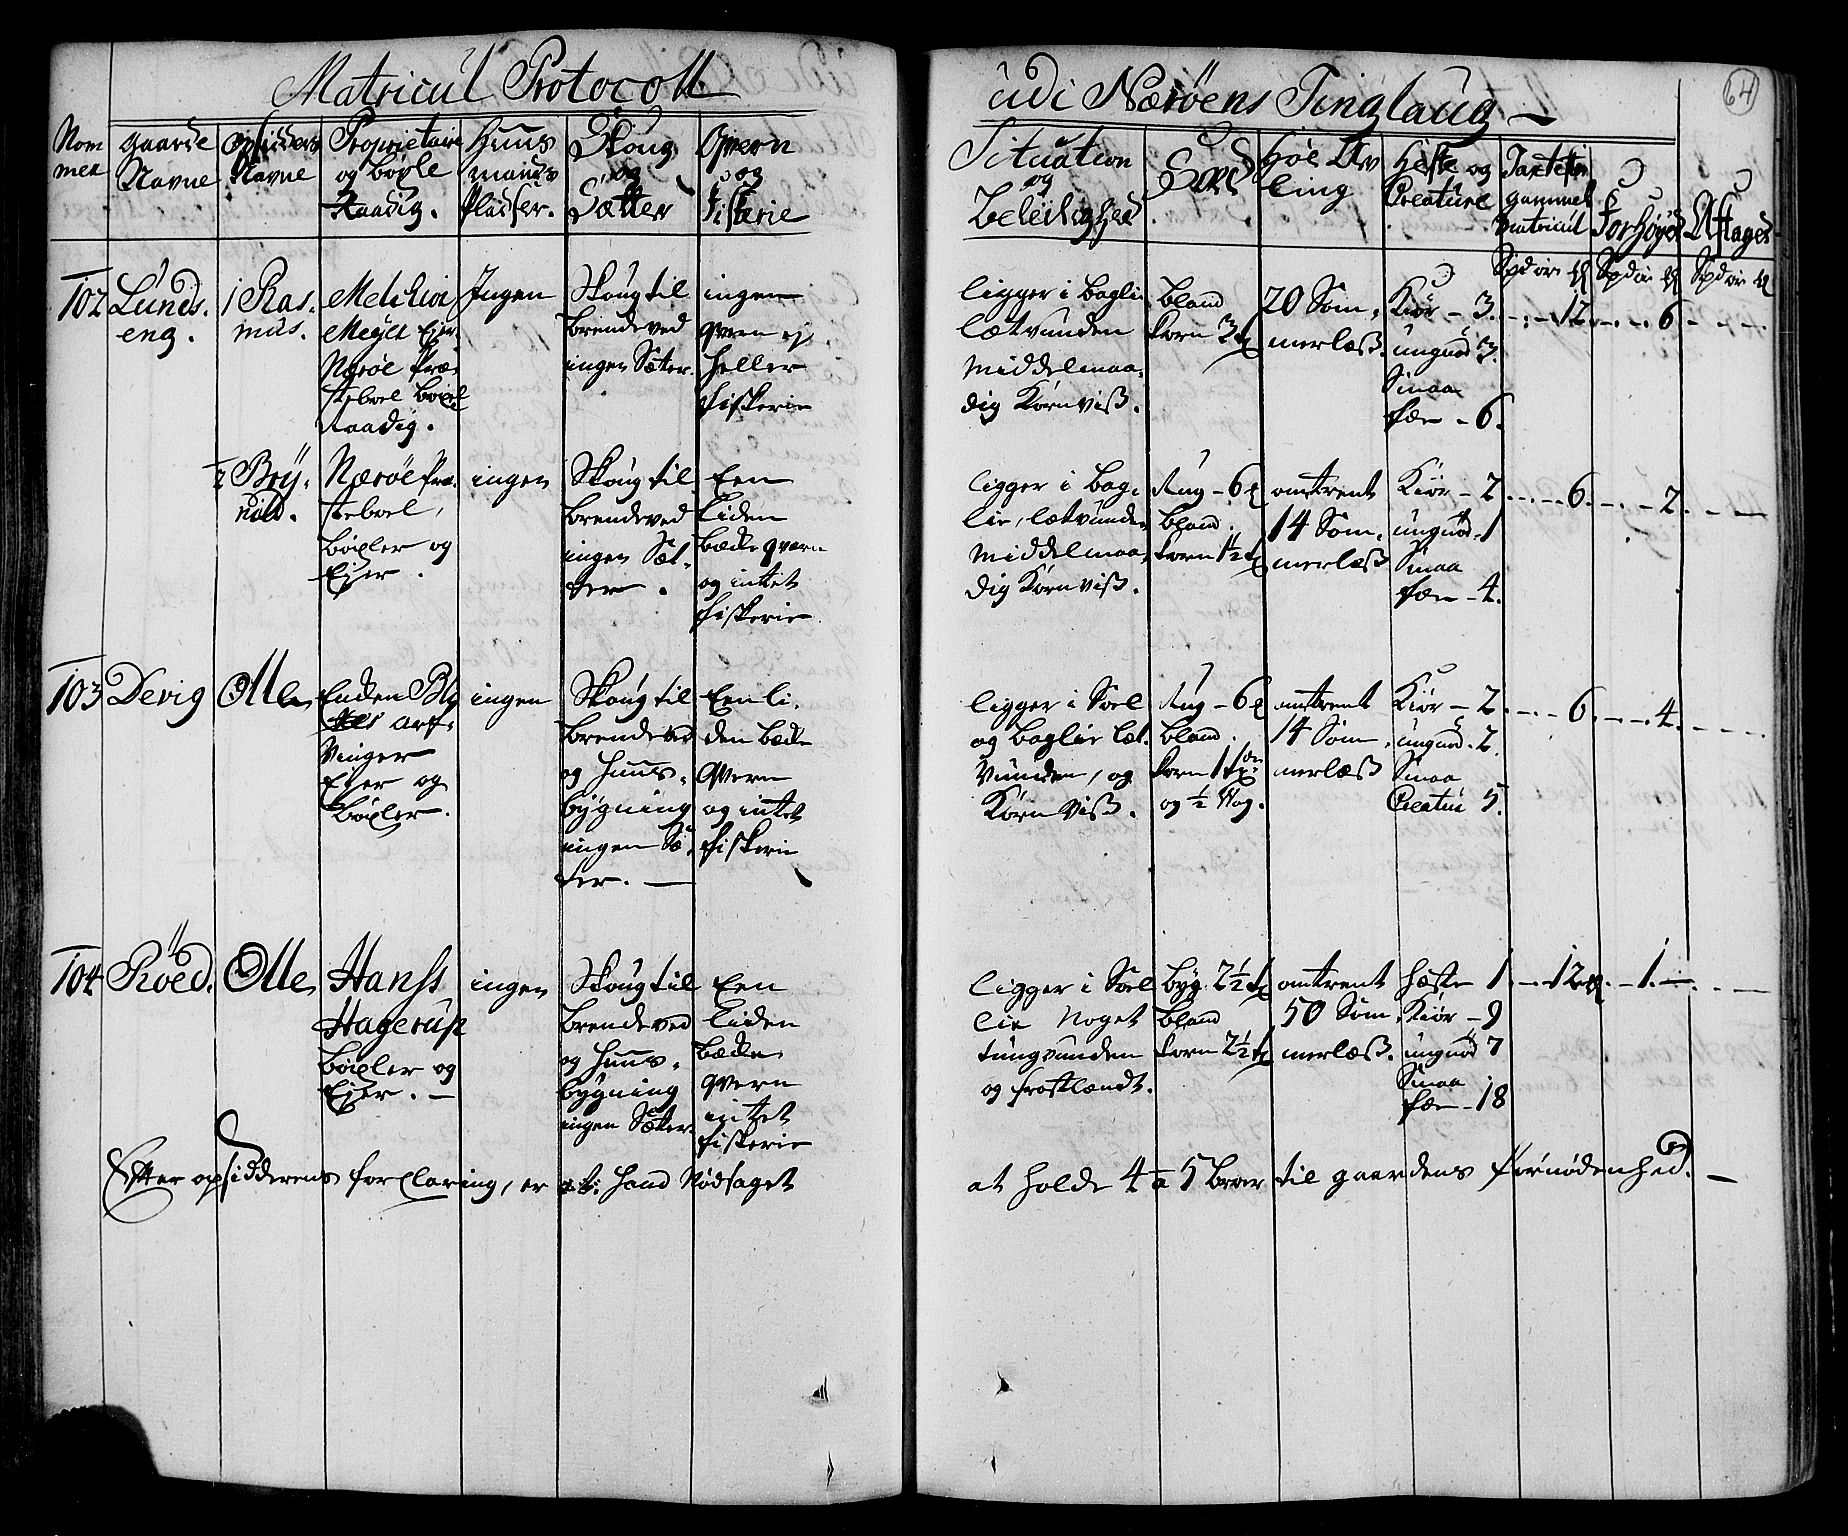 Matricul Protocoll
udi Nærøens Tinglaug
64
Nom
mer
gaarde
Navne
opsidders
Navne
Proprietair
og bøxle
Raadig.
Huus
mands
Pladser.
Skoug
og
Sætter
Qvern
og
fiskerie
Situation
og
Beleilighed
Sæd
Høe Av
ling
Heste og
Creature
Taxten
gammel
matricul
Forhøyed
Aftaged
Spd or
Spd or
Spd or
102
Lunds.
eng.
1 Ras.
mus.
Melchior
Meyer Ejer
Nærøe Præ
steboel boxel
Raadig.
Ingen
Skoug til
brendeved
ingen Sæter.
ingen
qvern ej
heller
fiskerie
ligger i baglie
lætvunden
middelmaa,
dig kornviss.
bland
korn 3
20 Som,
merlæss.
Kiør - 3.
ungnød 3.
Smaa
fæe - 6.
12
6
2 Bry,
nild.
Nærøe Præ,
steboel,
bøxler og
Ejer.
ingen
Skoug til
brendeved
ingen Sæt,
ter.
Een
liden
bæcke qvern
og intet
fiskerie
ligger i bag,
lie, lætvunden
middelmaa,
dig kornviss.
Rug - 6
bland
korn 1½
omtrent
14 Som,
merlæss
Kiør - 2
ungnød - 1
Smaa
fæe - 4.
6
2
103
Devig
Olle
Enden
arf,
vinger
Ejer og
bøxler.
ingen
Skoug til
brendeved
og huus,
bygning
ingen Sæ,
ter.
Een li,
den bæcke
qvern
og intet
fiskerie
ligger i Soel
og baglie læt,
vunden, og
kornviss.
Rug - 6
bland
korn 1
og ½ Wog.
omtrent
14 Som,
merlæss
Kiør - 2
ungnød - 2.
Smaa
Creatur 5.
6
4
104
Røed.
Olle
Hanss
Hagerup
bøxler og
Ejer.
ingen
Skoug til
brendeved
og huus,
bygning
ingen Sæter.
Een
liden
bæcke
qvern
intet
fiskerie
ligger i Soel
lie noget
tungvunden
og frostlændt.
byg 2½
bland
korn 2½
omtrent
50 Som,
merlæss.
hæste 1
Kiør - 9
ungnød 7
Smaa
fæe - 18
12
1
Efter opsidderens forclaring, er hand Nødsaget
at holde 4 a 5 til gaardens fornødenhed.